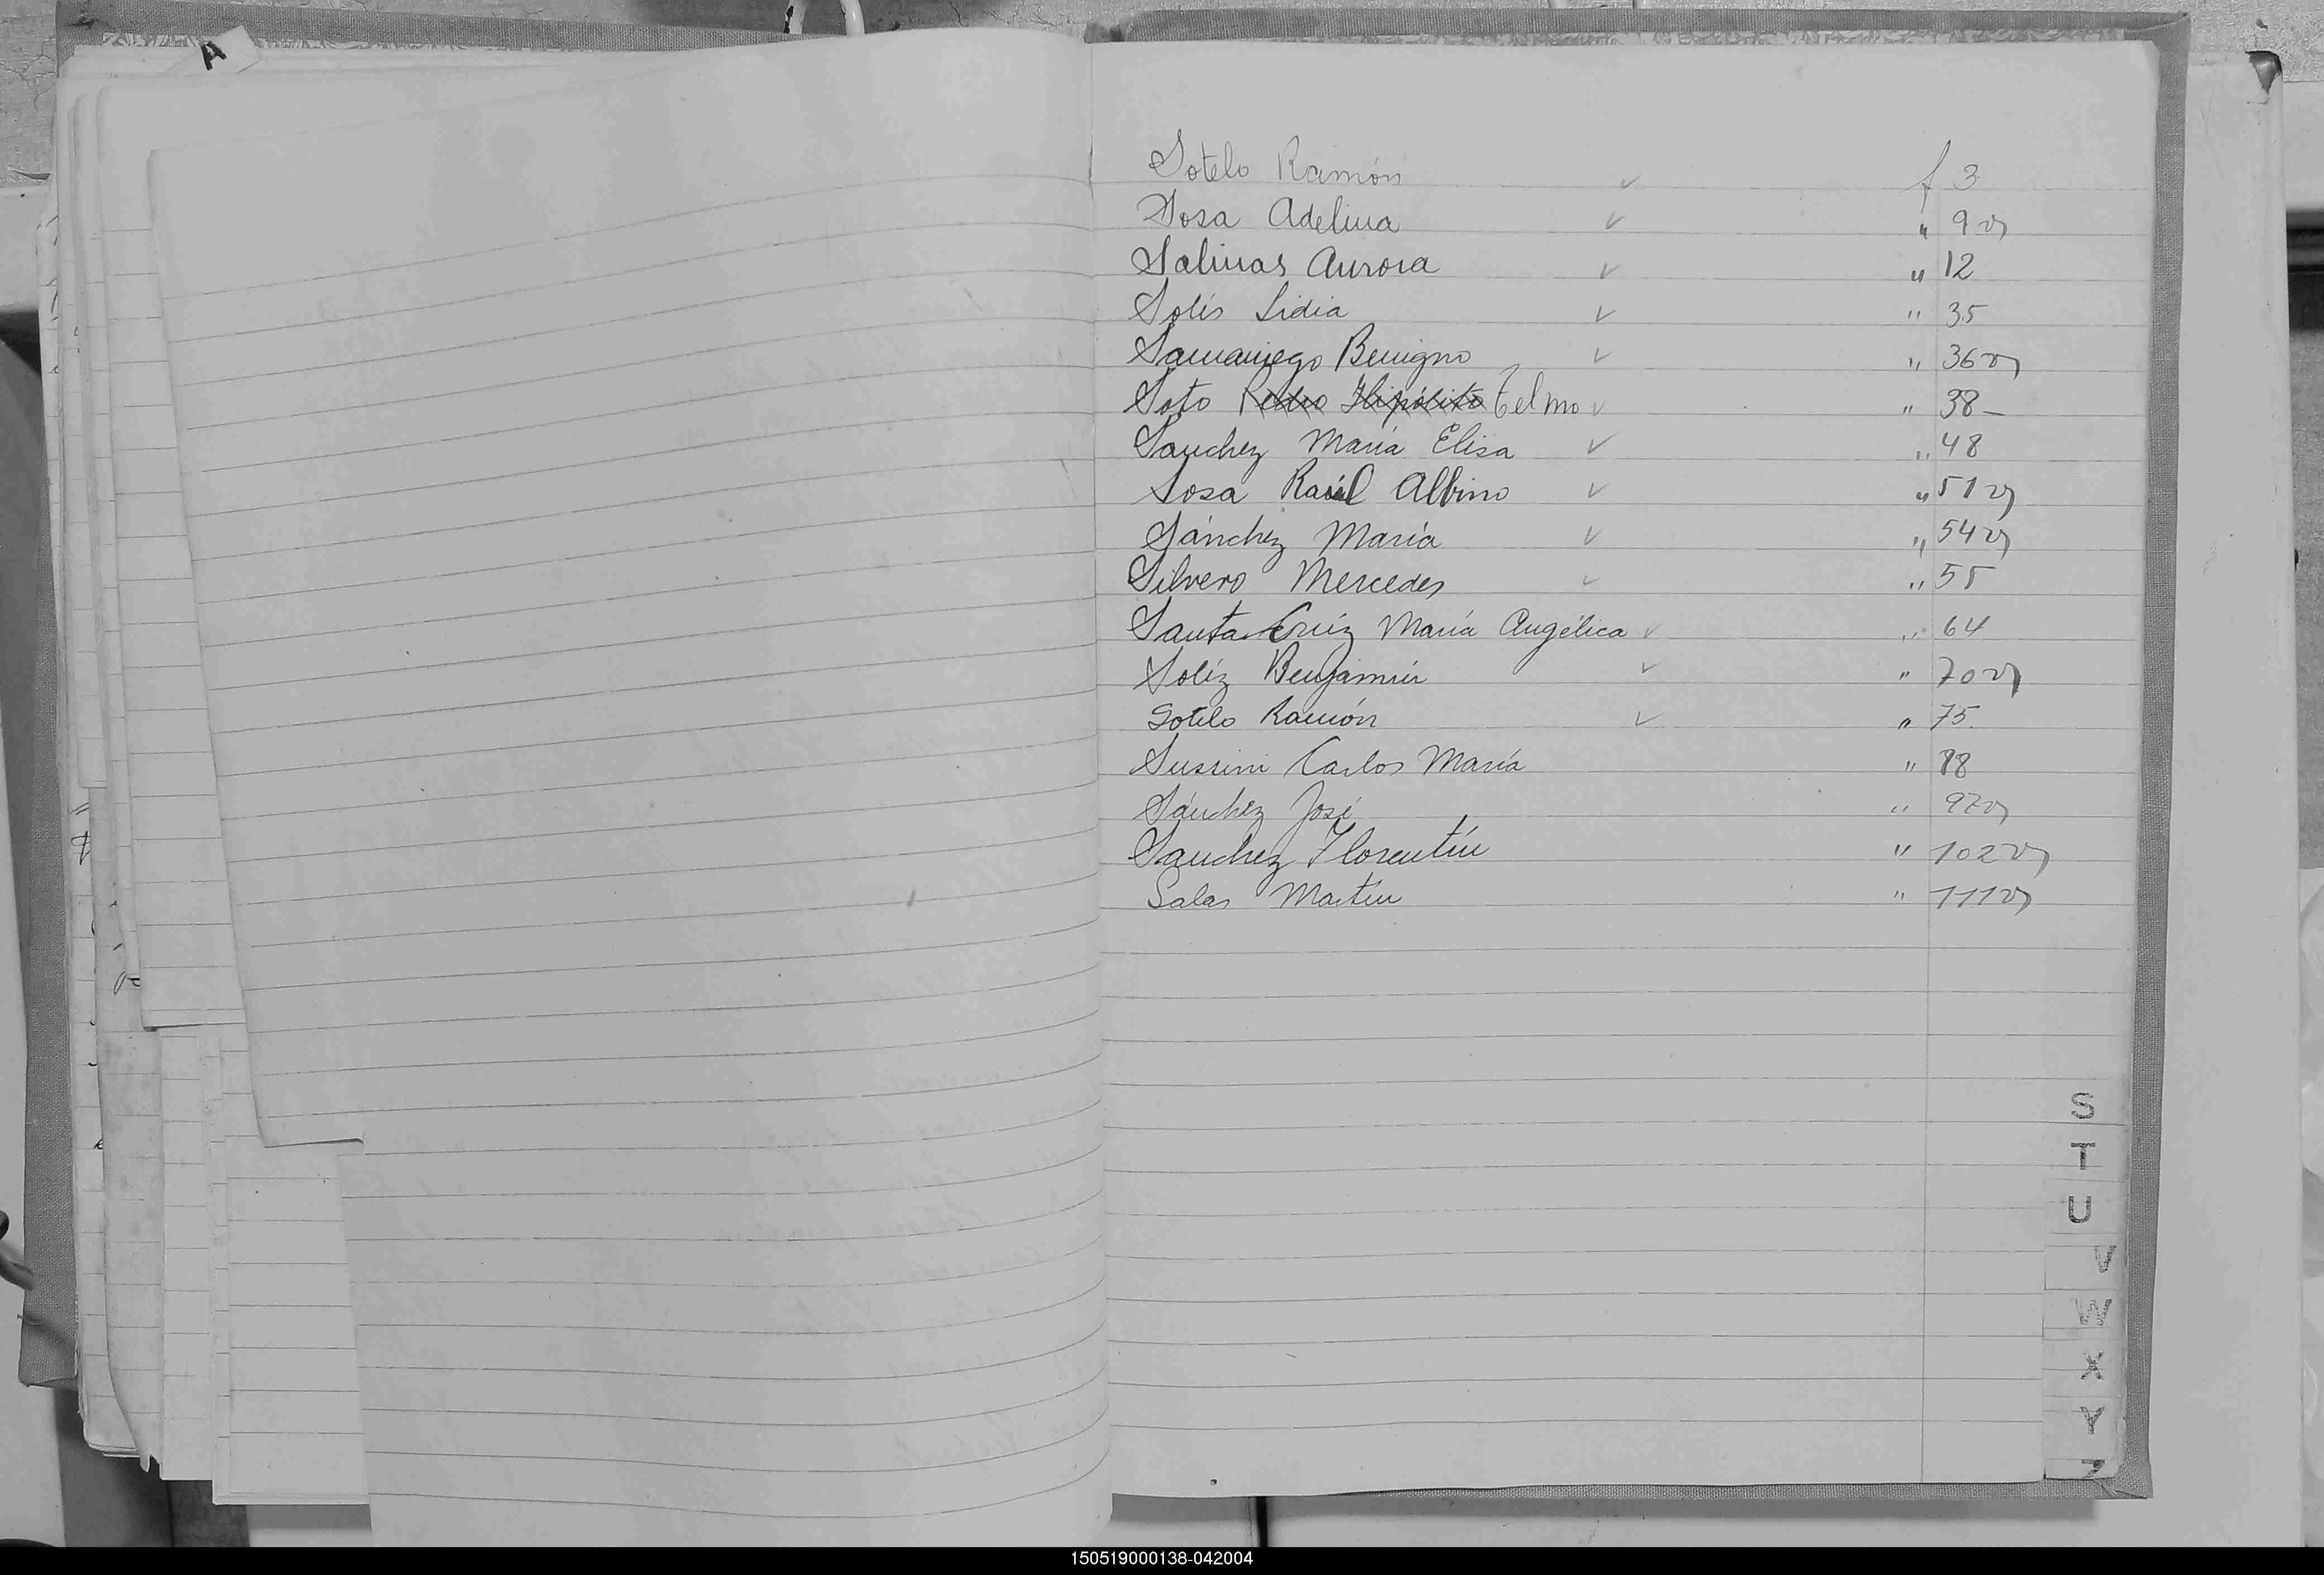 A
Sotelo Ramón ✓ f 3
Sosa Adelina ✓ " 9 v
Salinas Aurora ✓ " 12
Solis Lidia ✓ " 35
Samaniego Benigno ✓ " 36 v
Soto Pedro Hipólito Telmo ✓ " 38 -
Sanchez María Elisa ✓ " 48
Sosa Raúl Albino ✓ " 51 v
Sánchez María ✓ " 54 v
Silvero Mercedes ✓ " 55
Santa Cruz María Angélica ✓ " 64
Solíz Benjamín ✓ " 70 v
Sotelo Ramón ✓ " 75
Sussini Carlos María " 88
Sánchez José " 97 v
Sanchez Florentín " 102 v
Salas Martín " 111 v
S
T
U
V
W
X
Y
Z
150519000138-042004